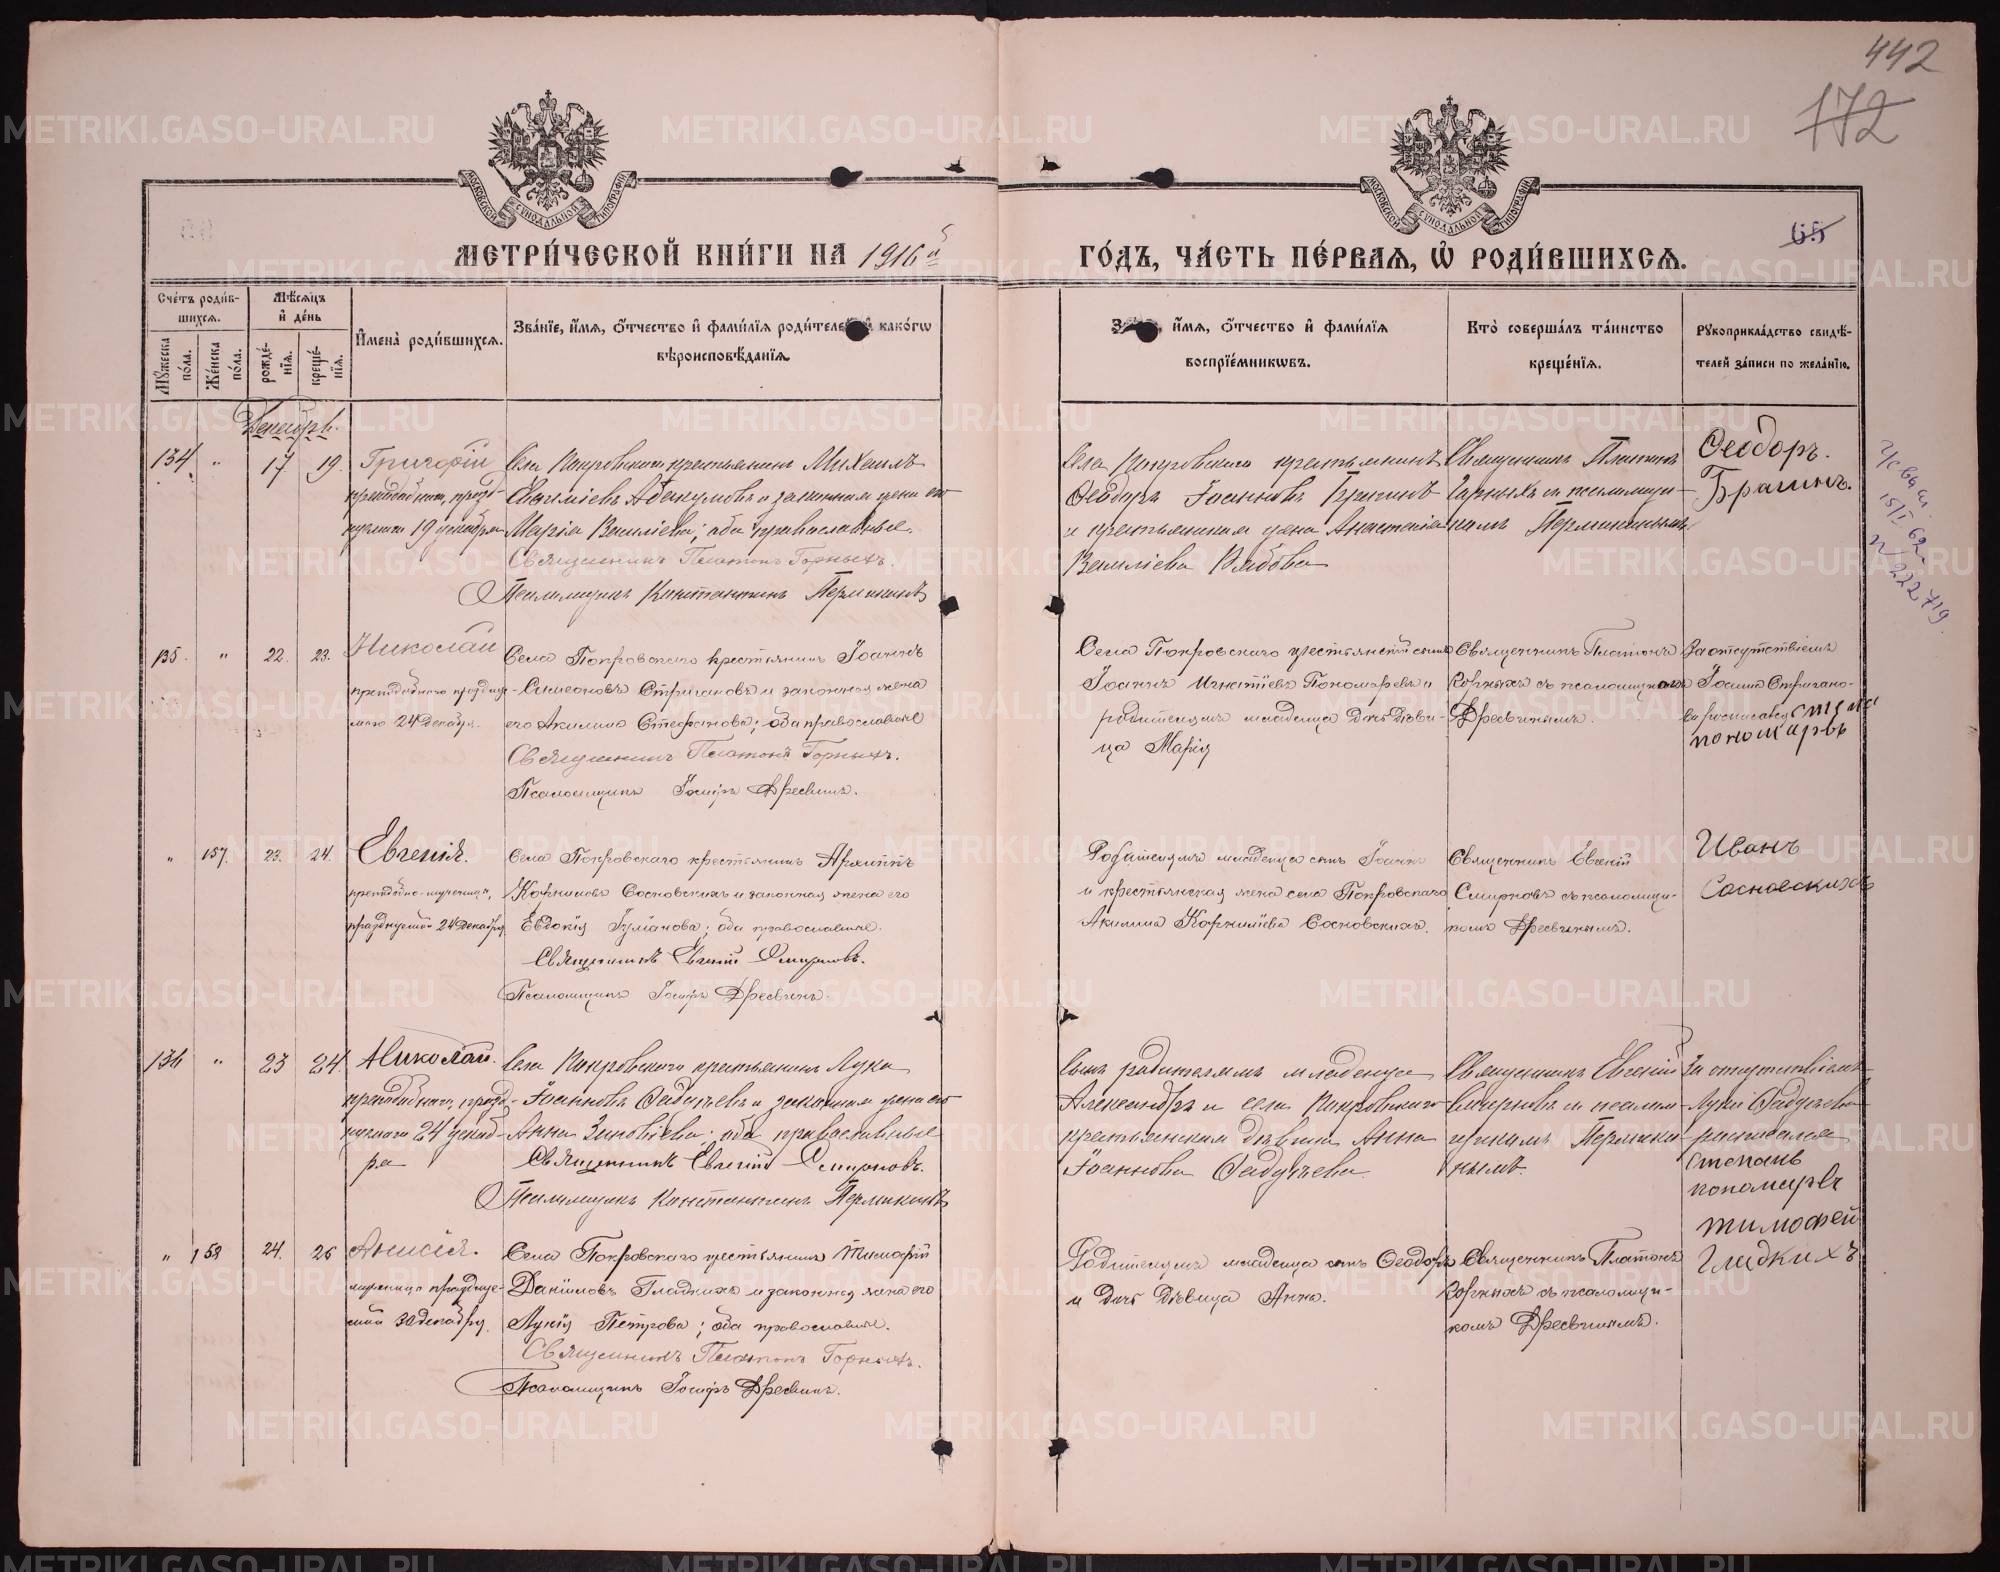 442
172
65
МЕТРИ́ЧЕСКОЙ КНИ́ГИ НА 1916й
ГО́ДЪ, ЧА́СТЬ ПЕ́РВАЯ, Ѡ҆ РОДИ́ВШИХСЯ.
Сче́тъ роди́в-
шихся.
Мѣ́сяцъ
и҆ де́нь
Мꙋ́жеска
по́ла.
Же́нска
по́ла.
рожде́-
нїя.
креще́-
нїя.
И҆мена̀ роди́вшихся.
Зва́нїе, и҆́мя, ѻ҆́тчество и҆ фами́лїя родителе
како́гѡ
вѣроисповѣ́данїя.
и҆́мя, ѻ҆́тчество и҆ фами́лїя
воспрїе́мникѡвъ.
Кто̀ соверша́лъ та́инство
креще́нїя.
Рꙋкоприкла́дство свидѣ́-
телей за́писи по жела́нїю.
Декабрь.
134. " 17 19.
Григорій
преподобнаго, празд-
нуемаго 19 декабря
Села Покровскаго крестьянинъ Михаилъ
Евгеміевъ Абакумовъ и законная жена его
Марія Васильева; оба православные.
Священникъ Платонъ Горныхъ.
Псаломщикъ Константинъ Пермикинъ
Села Покровскаго крестьянинъ
Ѳеодоръ Іоанновъ Брагинъ
и крестьянская жена Анастасія
Васильева Рябова
Священникъ Платонъ
Горныхъ съ псаломщи-
комъ Пермикинымъ
Ѳеодоръ.
Брагинъ.
15/I 62
N 222 719.
135. " 22. 23.
Николай
преподобнаго праздну-
маго 24 Декабря.
Села Покровскаго крестьянинъ Іоаннъ
Симеоновъ Стригановъ и законная жена
его Акилина Стефанова; оба православные
Священникъ Платонъ Горныхъ.
Псаломщикъ Іосифъ Дресвинъ.
Села Покровскаго крестьянскій сынъ
Іоаннъ Игнатіевъ Пономаревъ и
родителямъ младенца дочь дѣви-
ца Марія
Священникъ Платонъ
Горныхъ съ псаломщикомъ
Дресвинымъ.
За отсутствіемъ
Іоанна Стригано-
ва росписался
пономаръвъ
" 157. 23. 24.
Евгенія.
преподобно-мученицы,
празднуемой 24 Декабря
Села Покровскаго крестьянинъ Архиппъ
Корниловъ Сосновскихъ и законная жена его
Евдокія Іуліанова; оба православные.
Священникъ Евгеній Смирновъ.
Псаломщикъ Іосифъ Дресвинъ.
Родителямъ младенца сынъ Іоаннъ
и крестьянская жена села Покровскаго
Акилина Корниліева Сосновскихъ.
Священникъ Евгеній
Смирновъ съ псаломщи-
комъ Дресвинымъ.
Иванъ
Сосновскихъ
136 " 23 24.
Николай.
преподобнаго, празд-
нуемаго 24 декаб-
ря
Села Покровскаго крестьянинъ Лука
Іоанновъ Ѳадѣевъ и законная жена его
Анна Зиновіева; оба православные
Священникъ Евгеній Смирновъ.
Псаломщикъ Константинъ Пермикинъ
Сынъ родителямъ младенца
Александръ и села Покровскаго
крестьянская дѣвица Анна
Іоаннова Ѳадѣева.
Священникъ Евгеній
Смирновъ и псалом-
щикомъ Пермики-
нымъ.
За отсутствіемъ
Луки Ѳадѣева
расписался
степанъ
пономаревъ
" 158 24. 26
Анисія.
мученицы празднуе-
мой 30 декабря
Села Покровскаго крестьянинъ Тимофій
Даніиловъ Гладкихъ и законная жена его
Лукія Петрова; оба православные.
Священникъ Платонъ Горныхъ.
Псаломщикъ Іосифъ Дресвинъ.
Родителямъ младенца сынъ Ѳеодоръ
и дочь дѣвица Анна.
Священникъ Платонъ
Горныхъ съ псаломщи-
комъ Дресвинымъ.
тимофей
гладкихъ